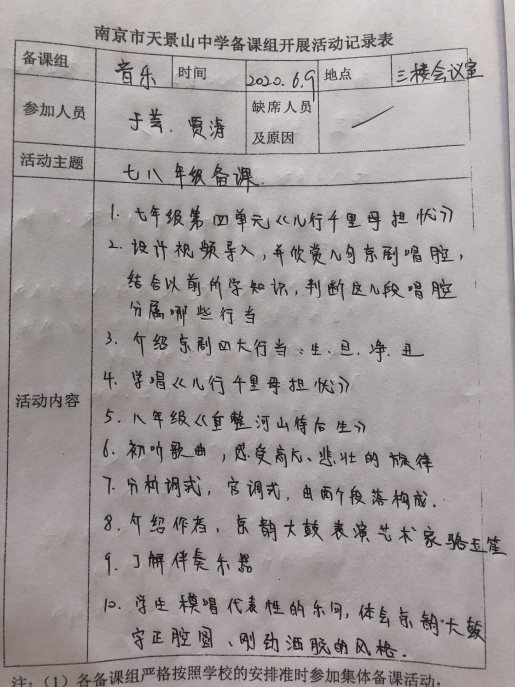 南京市天景山中学备课组开展活动记录表
备课组 音乐 时间 2020.6.9 地点 三楼会议室
参加人员 于芸、贾涛 缺席人员及原因
活动主题 七八年级备课
活动内容
1. 七年级第四单元《儿行千里母担忧》
2. 设计视频导入,并欣赏几句京剧唱腔,
结合以前所学知识,判断这几段唱腔
分属哪些行当
3. 介绍京剧四大行当:生、旦、净、丑
4. 学唱《儿行千里母担忧》
5. 八年级《重整河山待后生》
6. 初听歌曲,感受高亢、悲壮的旋律
7. 分析调式,宫调式,由两个段落构成.
8. 介绍作者,京韵大鼓表演艺术家骆玉笙
9. 了解伴奏乐器
10. 学生模唱代表性的乐句,体会京韵大鼓
字正腔圆、刚劲洒脱的风格.
注:(1)各备课组严格按照学校的安排准时参加集体备课活动;